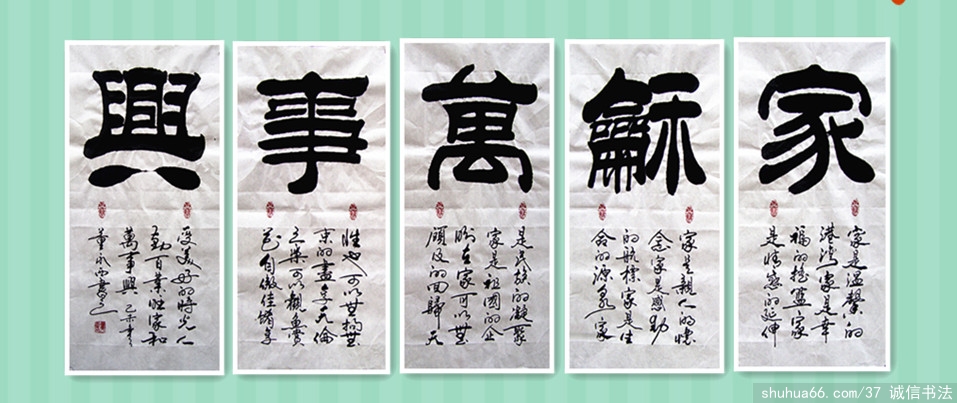 家
家是溫馨的
港灣家是幸
福的搖籃家
是情感的延伸
龢
家是親人的懷
念家是感動
的航標家是生
命的源泉家
萬
是民族的凝聚
家是祖國的企
盼在家可以無
顧及的回歸天
事
性也可以無拘無
束的盡享天倫
之樂可以觀魚賞
花自傲佳境享
興
受美好的時光人
勤百業旺家和
萬事興 乙未年
董永西書之
shuhua66.com/37 诚信书法